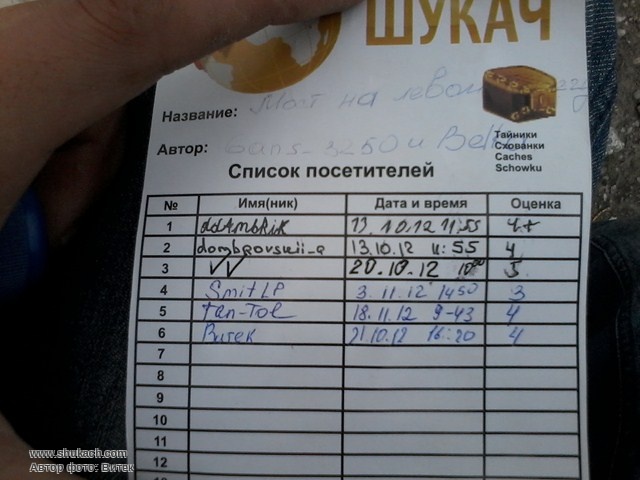 ШУКАЧ
Название: Мост на левом
Автор: 3250 и Bell
Тайники
Схованки
Caches
Schowku
Список посетителей
№ Имя(ник) Дата и время Оценка
1 ddAmbRiK 13.10.12 11:55 4+
2 dombrovskii-a 13.10.12 11:55 4
3 VV 20.10.12 5
4 SmitLP 3.11.12 1450 3
5 Tan-Tol 18.11.12 9-43 4
6 Витек 21.10.12 16:20 4
7
8
9
10
11
12
www.shukach.com
Автор фото: Витек